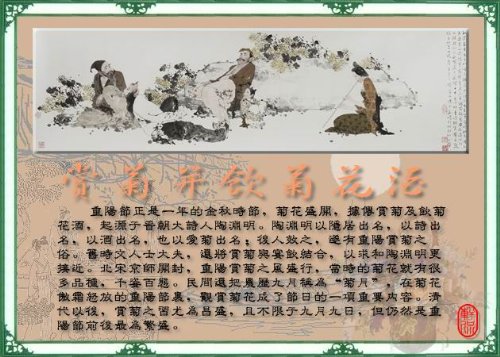 賞菊并飲菊花酒
重陽節正是一年的金秋時節，菊花盛開，據傳賞菊及飲菊
花酒，起源于晉朝大詩人陶淵明。陶淵明以隱居出名，以詩出
名，以酒出名，也以愛菊出名；後人效之，遂有重陽賞菊之
俗。舊時文人士大夫，還將賞菊與宴飲結合，以求和陶淵明更
接近。北宋京師開封，重陽賞菊之風盛行，當時的菊花就有很
多品種，千姿百態。民間還把農歷九月稱為“菊月”，在菊花
傲霜怒放的重陽節裏，觀賞菊花成了節日的一項重要內容。清
代以後，賞菊之習尤為昌盛，且不限于九月九日，但仍然是重
陽節前後最為繁盛。